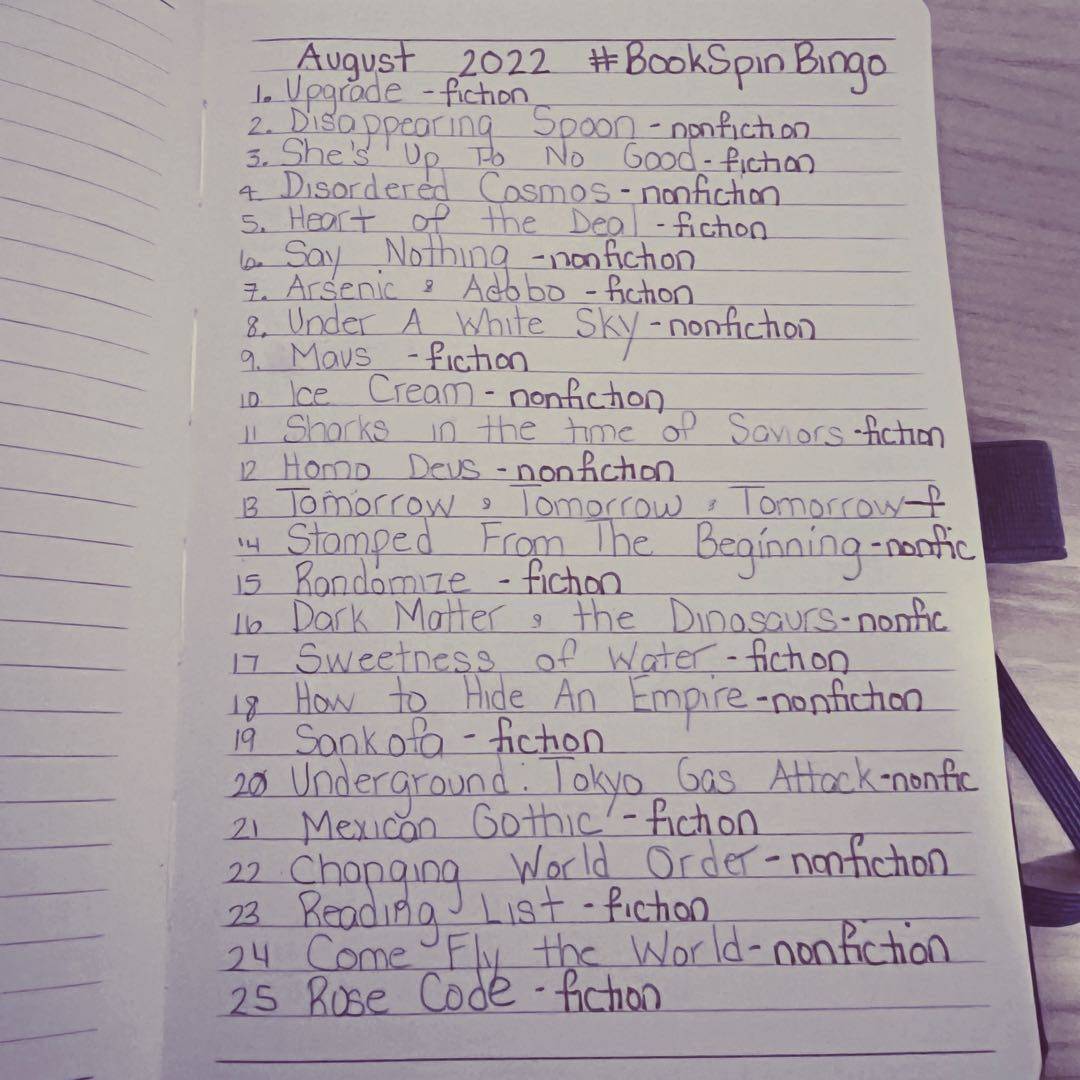 August 2022 #BookSpinBingo
1. Upgrade - fiction
2. Disappearing Spoon - nonfiction
3. She's Up To No Good - fiction
4 Disordered Cosmos - nonfiction
5. Heart of the Deal - fiction
6. Say Nothing - nonfiction
7. Arsenic & Adobo - fiction
8. Under A White Sky - nonfiction
9. Maus - fiction
10 Ice Cream - nonfiction
11 Sharks in the time of Saviors - fiction
12 Homo Deus - nonfiction
13 Tomorrow & Tomorrow & Tomorrow - f
14 Stamped From The Beginning - nonfic
15 Randomize - fiction
16 Dark Matter & the Dinosaurs - nonfic
17 Sweetness of Water - fiction
18 How to Hide An Empire - nonfiction
19 Sankofa - fiction
20 Underground: Tokyo Gas Attack - nonfic
21 Mexican Gothic - fiction
22 Changing World Order - nonfiction
23 Reading List - fiction
24 Come Fly the World - nonfiction
25 Rose Code - fiction